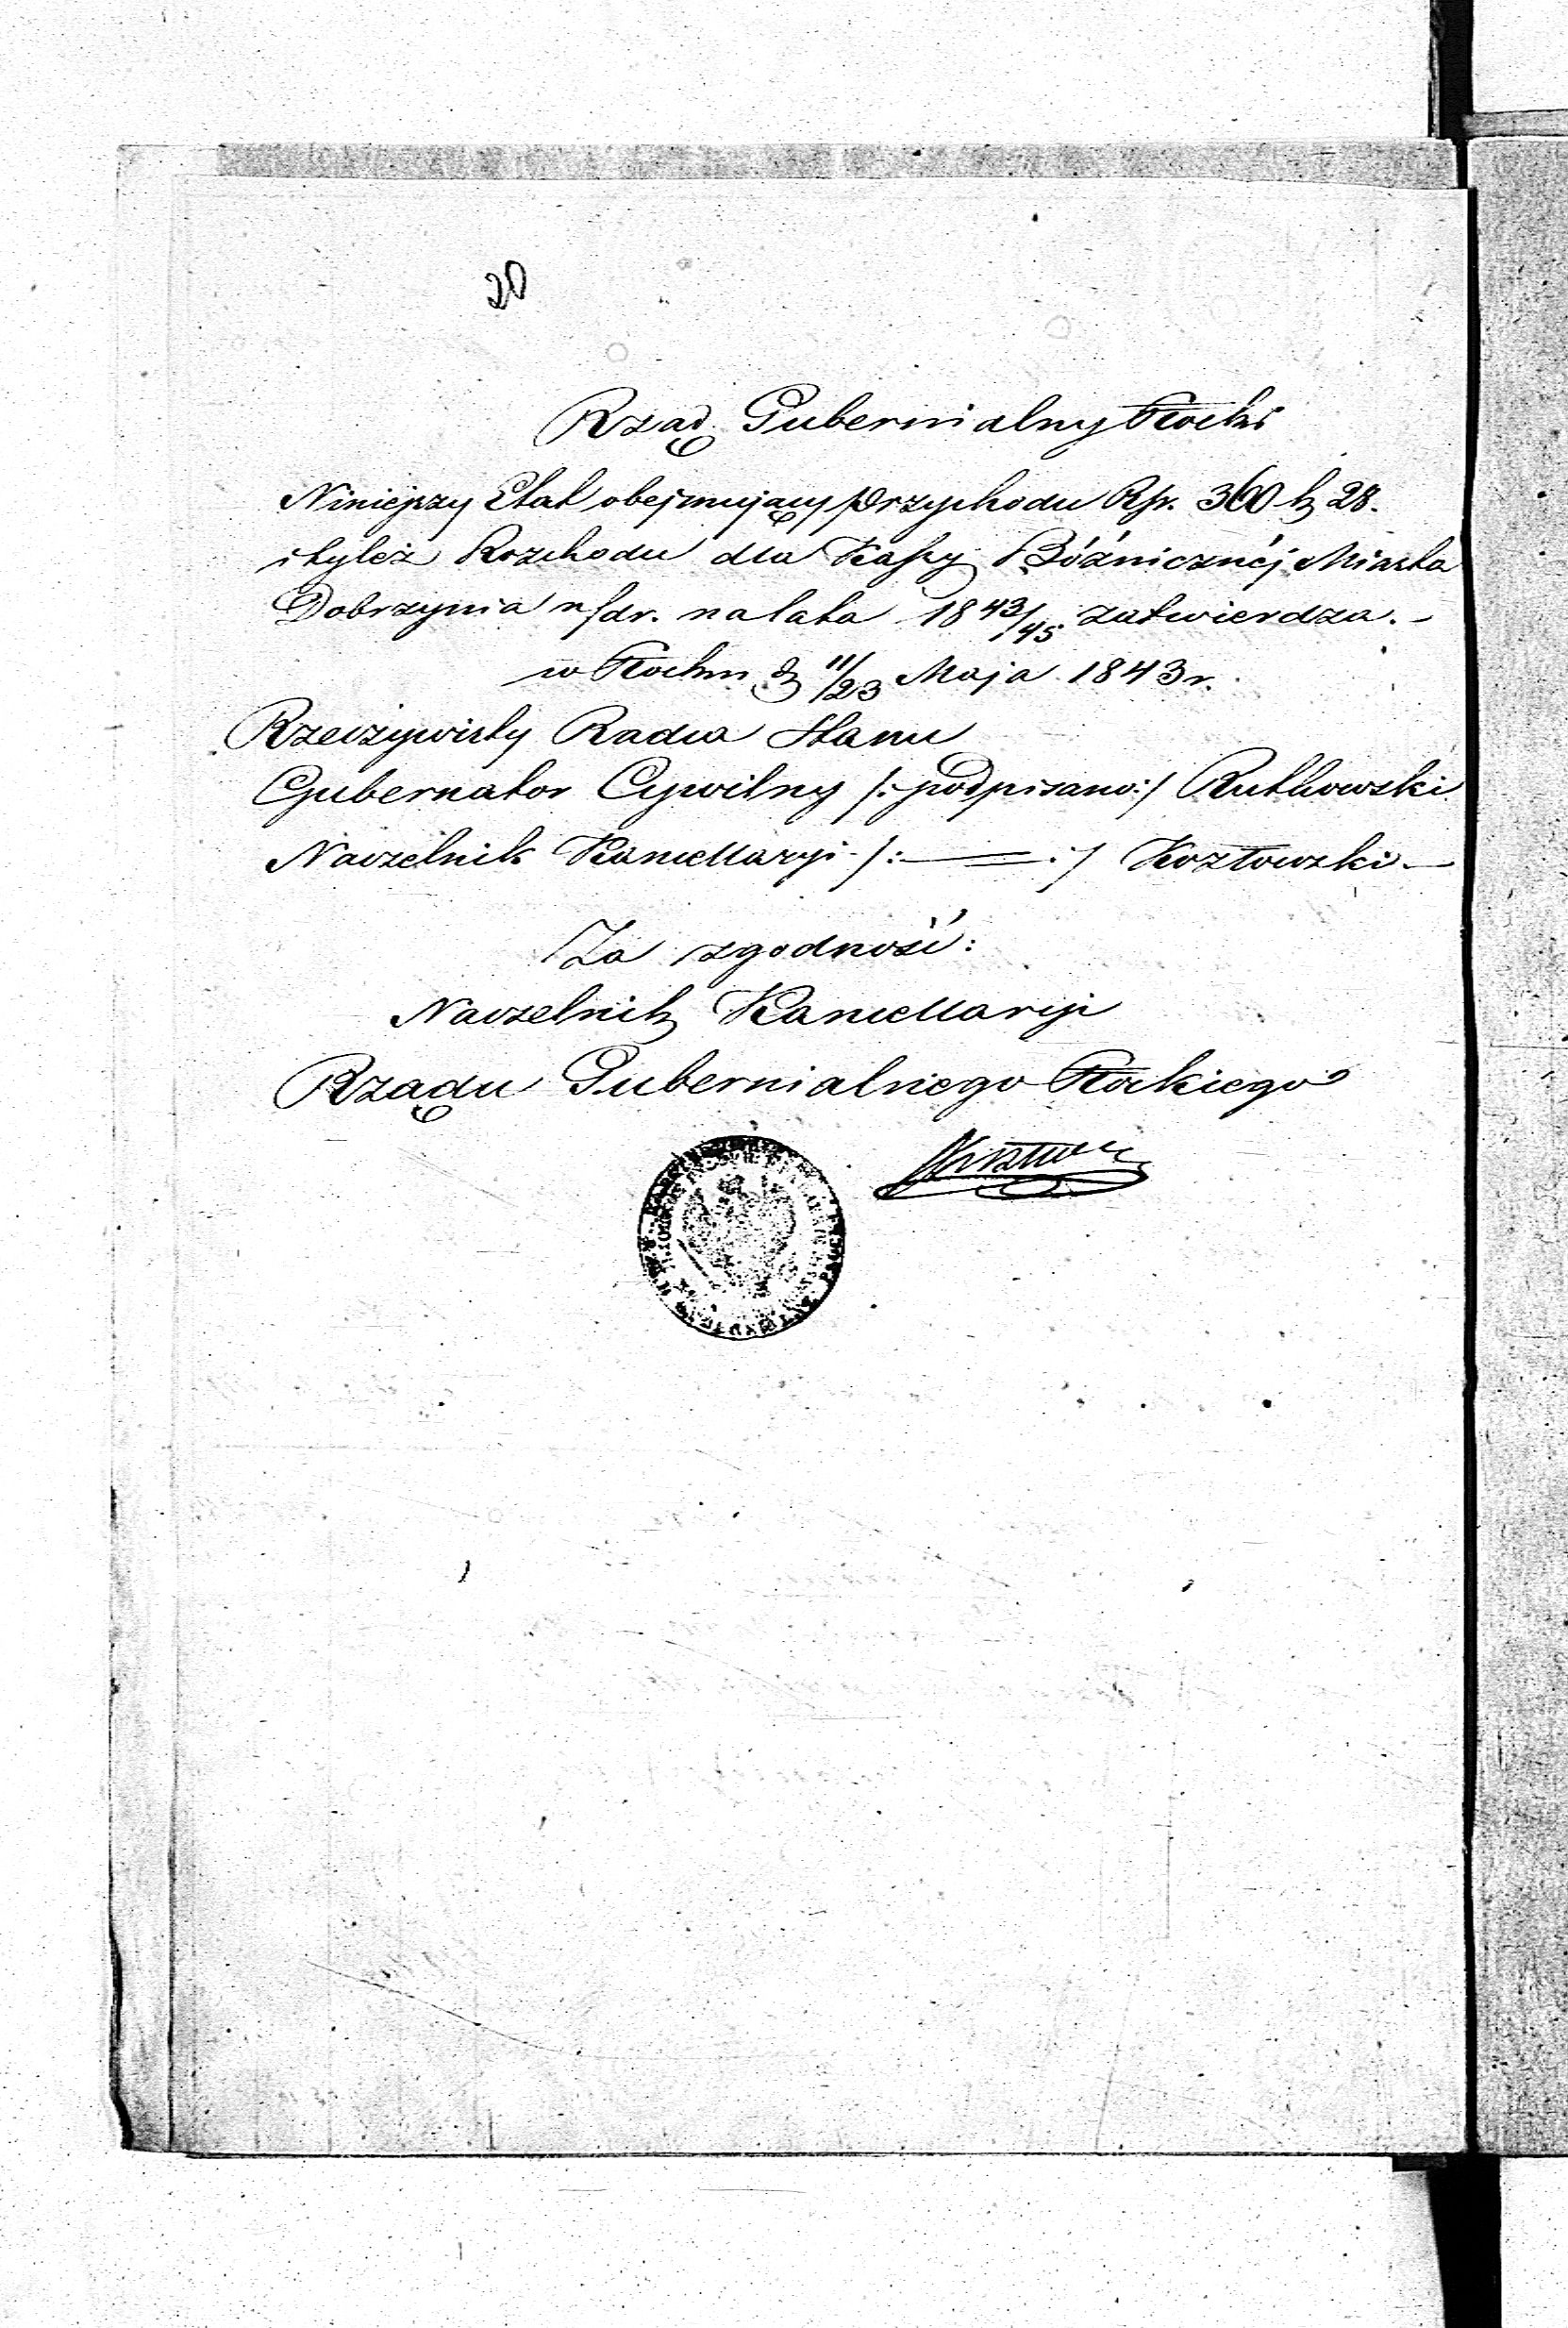 20
Rząd Gubernialny Płocki
Niniejszy Etat obejmujący Przychodu Rsr. 360 k 28.
i tyleż Rozchodu dla Kassy Bóźnicznéj Miasta
Dobrzynia n/dr. na lata 1843/45 zatwierdza.-
w Płocku d 11/23 Maja 1843 r.
Rzeczywisty Radca Stanu
Gubernator Cywilny /: podpisano :/ Rutkowski
Naczelnik Kancellaryi /: — = :/ Kozłowski —
Za zgodność:
Naczelnik Kancellaryi
Rządu Gubernialnego Płockiego